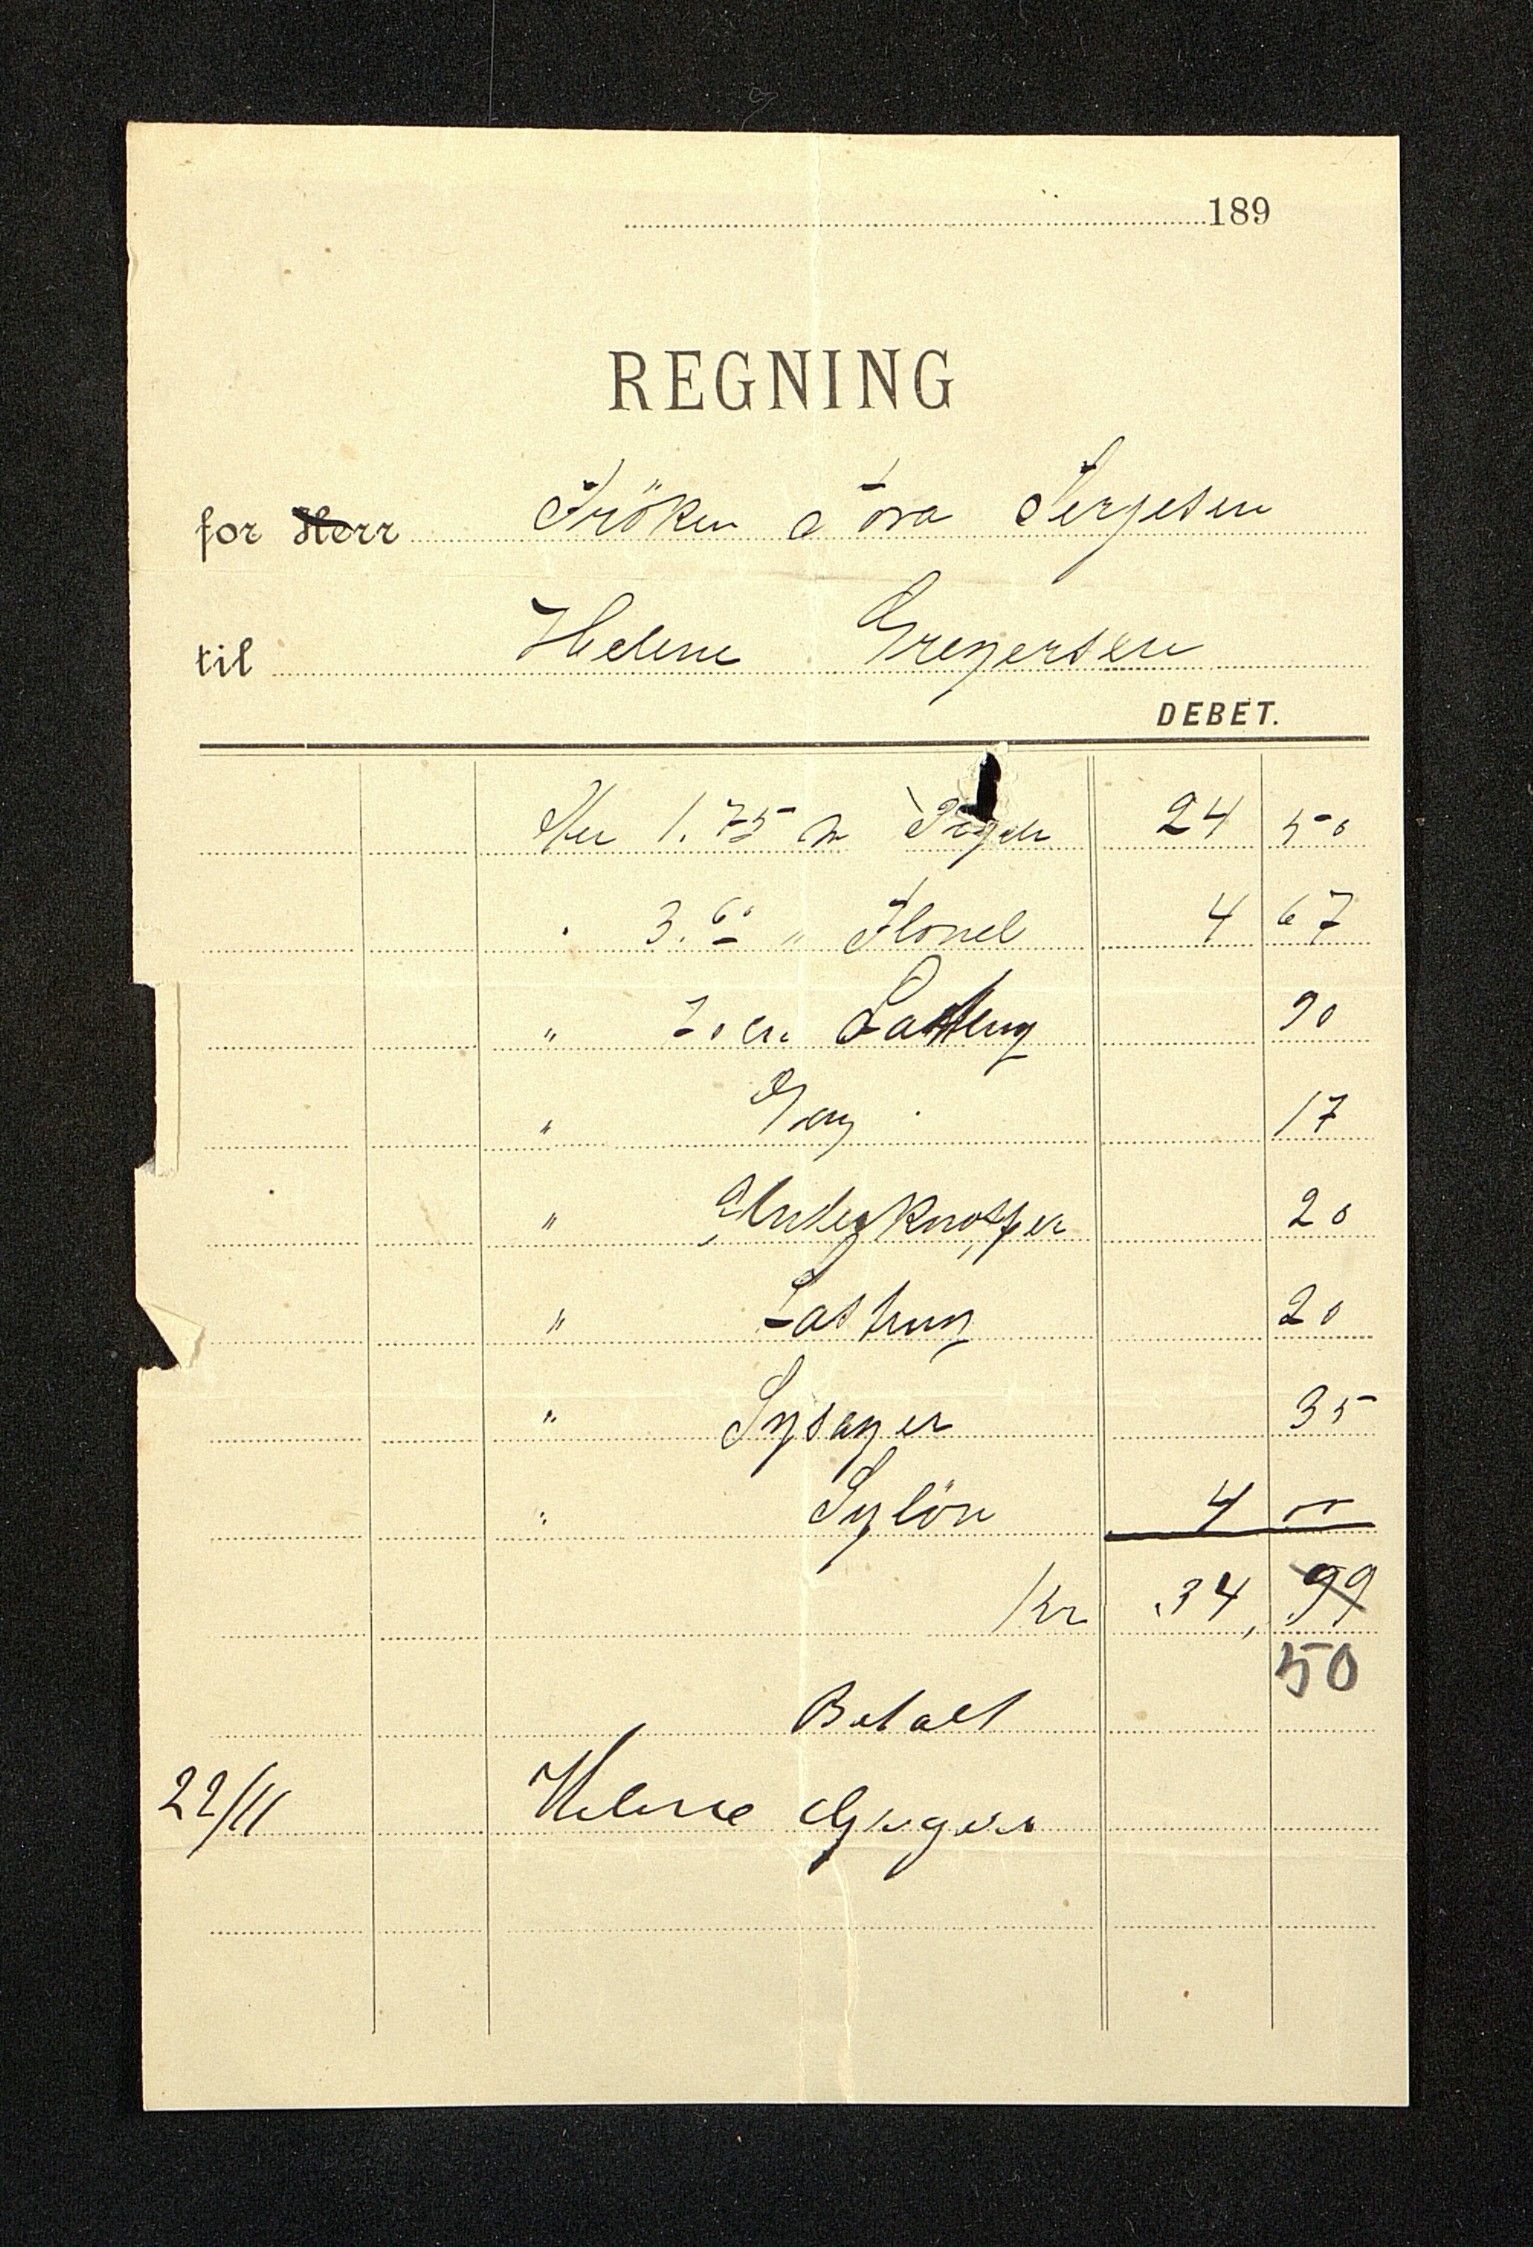 189
REGNING
for Herr Fröken Tora Terjesen
til Helene Gregersen
DEBET.
1.75 m 24 50
3.60 " Flonel 4 67
" Lasting 90
" 17
" Underknapper 20
" Lasting 20
" Sysager 35
" Sylön 4 "
Kr 34, 99
50
Betalt
22/11 Helene Gregers